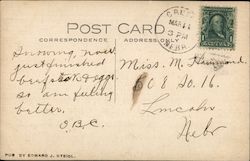 POST CARD
CORRESPONDENCE
ADDRESS ONLY
MAR 11
3 PM
NEBR
Snowing now
just finished
beefsteak & eggs
so am feeling
better.
Miss. M. Hammond
Lincoln
Nebr
PUB BY EDWARD J. STEIDL.